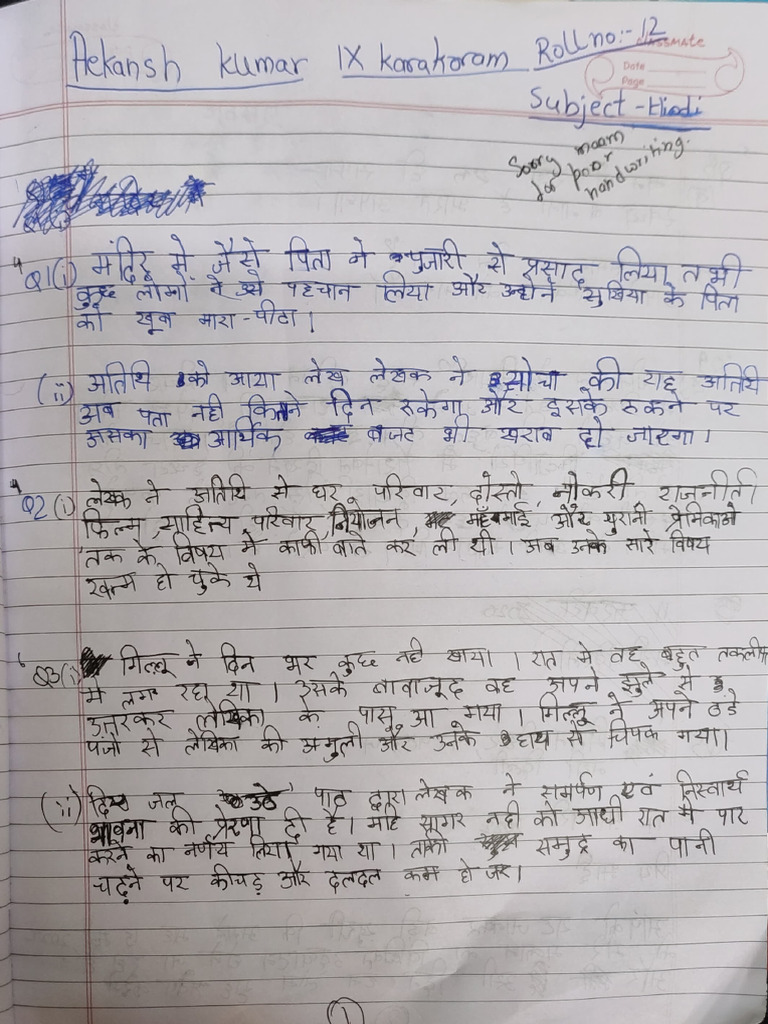 Aekansh Kumar IX Karakoram Roll no:- 12
classmate
Date
Page
Subject - Hindi
Sorry maam
for poor
handwriting.
Q1(i) मंदिर में जैसे पिता ने पुजारी से प्रसाद लिया तभी
कुछ लोगों ने उसे पहचान लिया और उन्होंने सुखिया के पिता
को खूब मारा-पीटा।
(ii) अतिथि को आया लेख लेखक ने सोचा की यह अतिथि
अब पता नही कितने दिन रुकेगा और इसके रुकने पर
उसका आर्थिक बजट भी खराब हो जाएगा।
Q2(i) लेखक ने अतिथि से घर परिवार, दोस्तो, नौकरी राजनीती
फिल्म, साहित्य, परिवार नियोजन, मँहगाई और पुरानी प्रेमिकाओ
तक के विषय मे काफी बाते कर ली थी। अब उनके सारे विषय
खत्म हो चुके थे
Q3(i) गिल्लू ने दिन भर कुछ नही खाया। रात मे वह बहुत तकलीफ
मे लग रहा था। उसके बावाजूद वह अपने झुले से
उत्तरकर लेखिका के पास आ गया। गिल्लू ने अपने ठंडे
पंजो से लेखिका की अगुली और उनके हाथ से चिपक गया।
(ii) दिए जल उठे पाठ द्वारा लेखक ने समर्पण एवं निस्वार्थ
भावना की प्रेरणा दी है। महि सागर नदी को आधी रात मे पार
करने का निर्णय लिया गया था। ताकी समुद्र का पानी
चढ़ने पर कीचड़ और दलदल कम हो जाए।
1